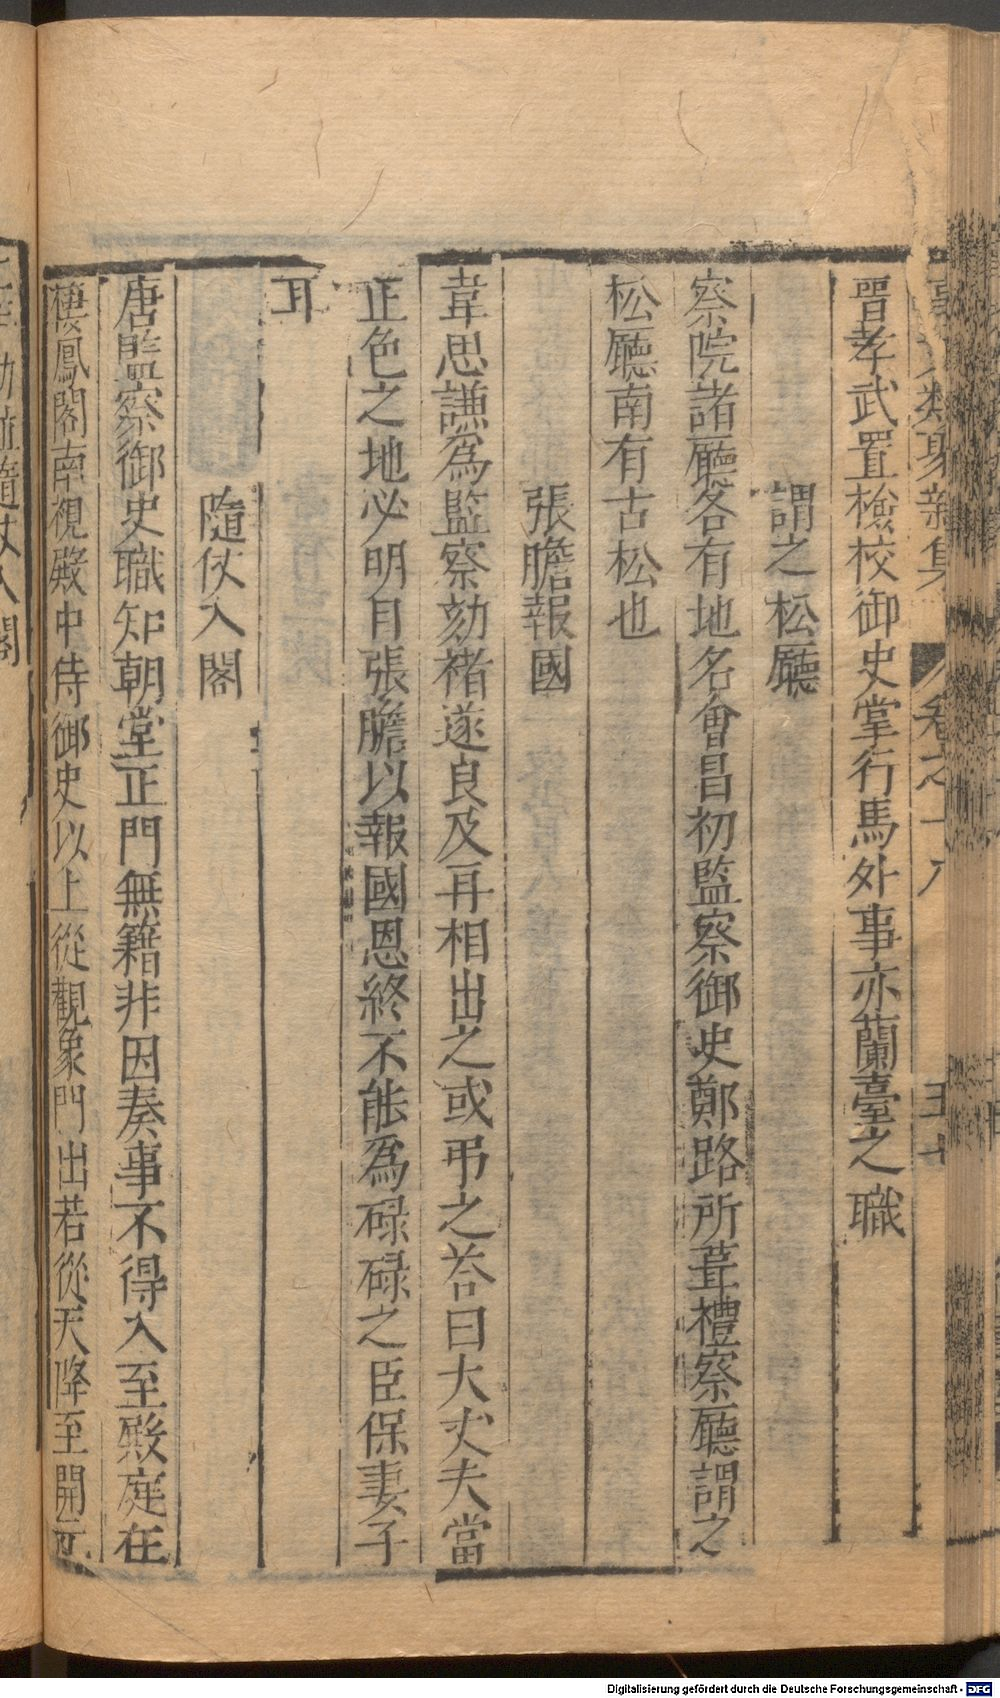 晉孝武置檢校御史掌行馬外事亦蘭臺之職
謂之松廳
察院諸廳各有地名會昌初監察御史鄭路所葺禮察廳謂之
松廳南有古松也
張膽報國
韋思謙為監察劾褚遂良及再相出之或弔之荅曰大丈夫當
正色之地必明目張膽以報國恩終不能為碌碌之臣保妻子
耳
隨仗入閣
唐監察御史職知朝堂正門無籍非因奏事不得入至殿庭在
棲鳳閣南視殿中侍御史以上從觀象門出若從天降至開元
隨仗入閣
Digitalisierung gefördert durch die Deutsche Forschungsgemeinschaft - DFG